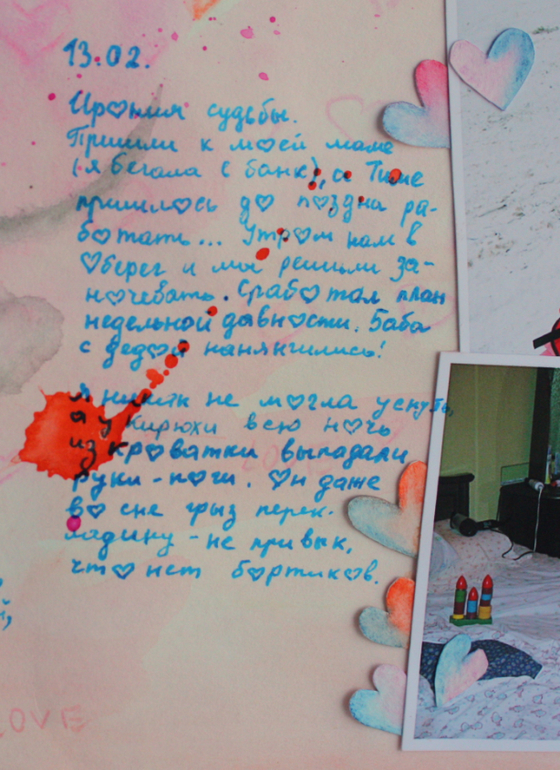 13.02.
Ирония судьбы.
Пришли к моей маме
(я бегала с банк), а Тиме
пришлось до поздна ра-
ботать... Утром нам в
Оберег и мы решили за-
ночевать. Сработал план
недельной давности. Баба
с дедой нанянчились!
Я никак не могла уснуть,
а у Кирюхи всю ночь
из кроватки выпадали
руки-ноги. Он даже
во сне грыз перек-
ладину - не привык,
что нет бортиков.
LOVE